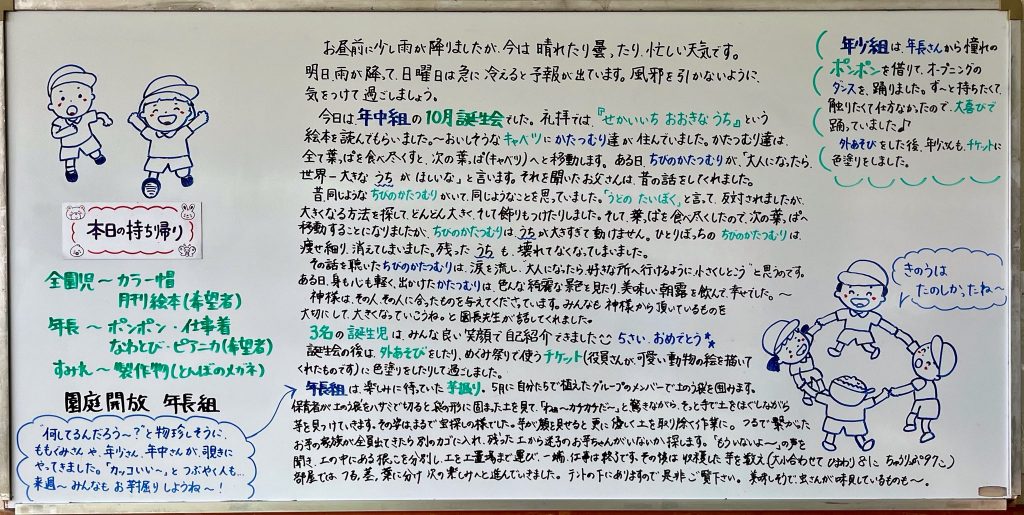 お昼前に少し雨が降りましたが、今は 晴れたり曇ったり、忙しい天気です。
明日、雨が降って、日曜日は急に冷えると予報が出ています。風邪を引かないように、
気をつけて過ごしましょう。
今日は、年中組の10月誕生会でした。礼拝では『せかいいち おおきなうち』という
絵本を読んでもらいました。〜おいしそうなキャベツにかたつむり達が住んでいました。かたつむり達は、
全て葉っぱを食べ尽くすと、次の葉っぱ(キャベツ)へと移動します。ある日、ちびのかたつむりが、「大人になったら、
世界一大きな うち が ほしいな」と言います。それを聞いたお父さんは、昔の話をしてくれました。
昔、同じような ちびのかたつむりがいて、同じようなことを思っていました。「うどの たいぼく」と言って、反対されましたが、
大きくなる方法を探して、どんどん大きく、そして飾りもつけたりしました。そして、葉っぱを食べ尽くしたので、次の葉っぱへ
移動することになりましたが、ちびのかたつむりは、うちが大きすぎて動けません。ひとりぼっちの ちびのかたつむりは、
痩せ細り、消えてしまいました。残った うち も、壊れてなくなってしまいました。
その話を聴いたちびのかたつむりは、涙を流し、大人になったら、好きな所へ行けるように、小さくしとこう"と思うのです。
ある日、身も心も軽く、出かけたかたつむりは、色んな綺麗な景色を見たり、美味しい朝露を飲んで、幸せでした。〜
神様は、その人、その人に合ったものを与えてくださっています。みんなも神様から頂いているものを
大切にして、大きくなっていこうね。と園長先生が話してくれました。
3名の誕生児は、みんな良い笑顔で自己紹介できました 5さい、おめでとう
誕生会の後は、外あそびをしたり、めぐみ祭りで使うチケット(役員さんが、可愛い動物の絵を描いて
くれたものです)に色塗りをしたりして過ごしました。
年長組は、楽しみに待っていた芋掘り。5月に自分たちで植えたグループのメンバーで土のう袋を囲みます。
保育者が土のう袋をハサミで切ると袋の形に固まった土を見て、「ねぇ〜カチカチだ〜」と驚きながら、そっと手で土をほぐしながら
芋を見つけていきます。その姿はまるで宝探しの様でした。芋が顔を見せると更に優しく土を取り除く作業に。つるで繋がった
お芋の家族が全員出てきたら別のカゴに入れ、残った土から迷子のお芋ちゃんがいないか探します。「もういないよ〜」の声を
聞き、土の中にある根っこを分別し、土を土置場まで運び、一端、仕事は終了です。その後は収穫した芋を数え(大小合わせて ひまわり81こ ちゅうりっぷ97こ)
部屋では、つる、茎、葉に分け 次の楽しみへと進んでいきました。テントの下にありますので是非ご覧下さい。美味しそうで、虫さんが味見しているものも〜。
年少組は、年長さんから憧れの
ポンポンを借りて、オープニングの
ダンスを、踊りました。ず〜と持ちたくて、
触りたくて仕方なかったので、大喜びで
踊っていました♪
外あそびをした後、年少さんも、チケットに
色塗りをしました。
本日の持ち帰り
全園児〜カラー帽
月刊絵本(希望者)
年長〜ポンポン・仕事着
なわとび・ピアニカ(希望者)
すみれ〜製作物(とんぼのメガネ)
園庭開放 年長組
"何してるんだろう〜?"と物珍しそうに、
ももぐみさんや、年少さん、年中さんが、覗きに
やってきました。「カッコいい〜」とつぶやく人も…
来週〜みんなもお芋掘りしようね〜!
きのうは
たのしかったね〜